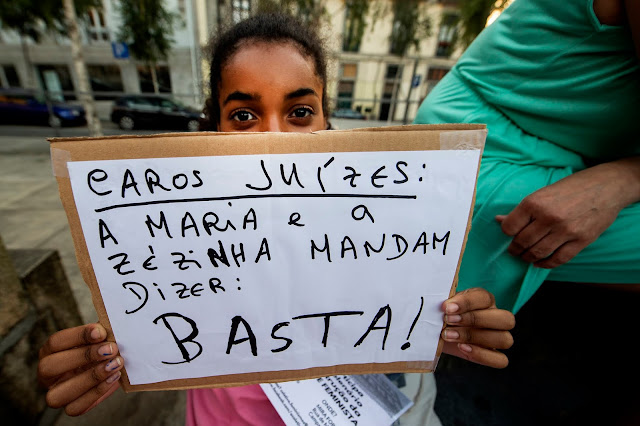 CAROS JUÍZES:
A MARIA e a
ZÉZINHA MANDAM
DIZER:
BASTA!
FEMINISTA
ONDE?